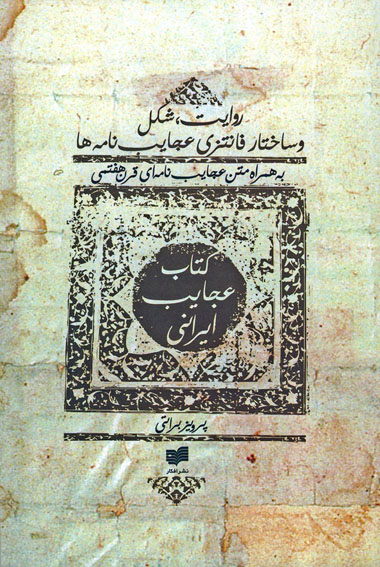 روایت، شکل
و ساختار فانتزی عجایب‌نامه‌ها
به همراه متن عجایب نامه‌ای قرن هفتمی
کتاب
عجایب
ایرانی
پرویز براتی
نشر افکار